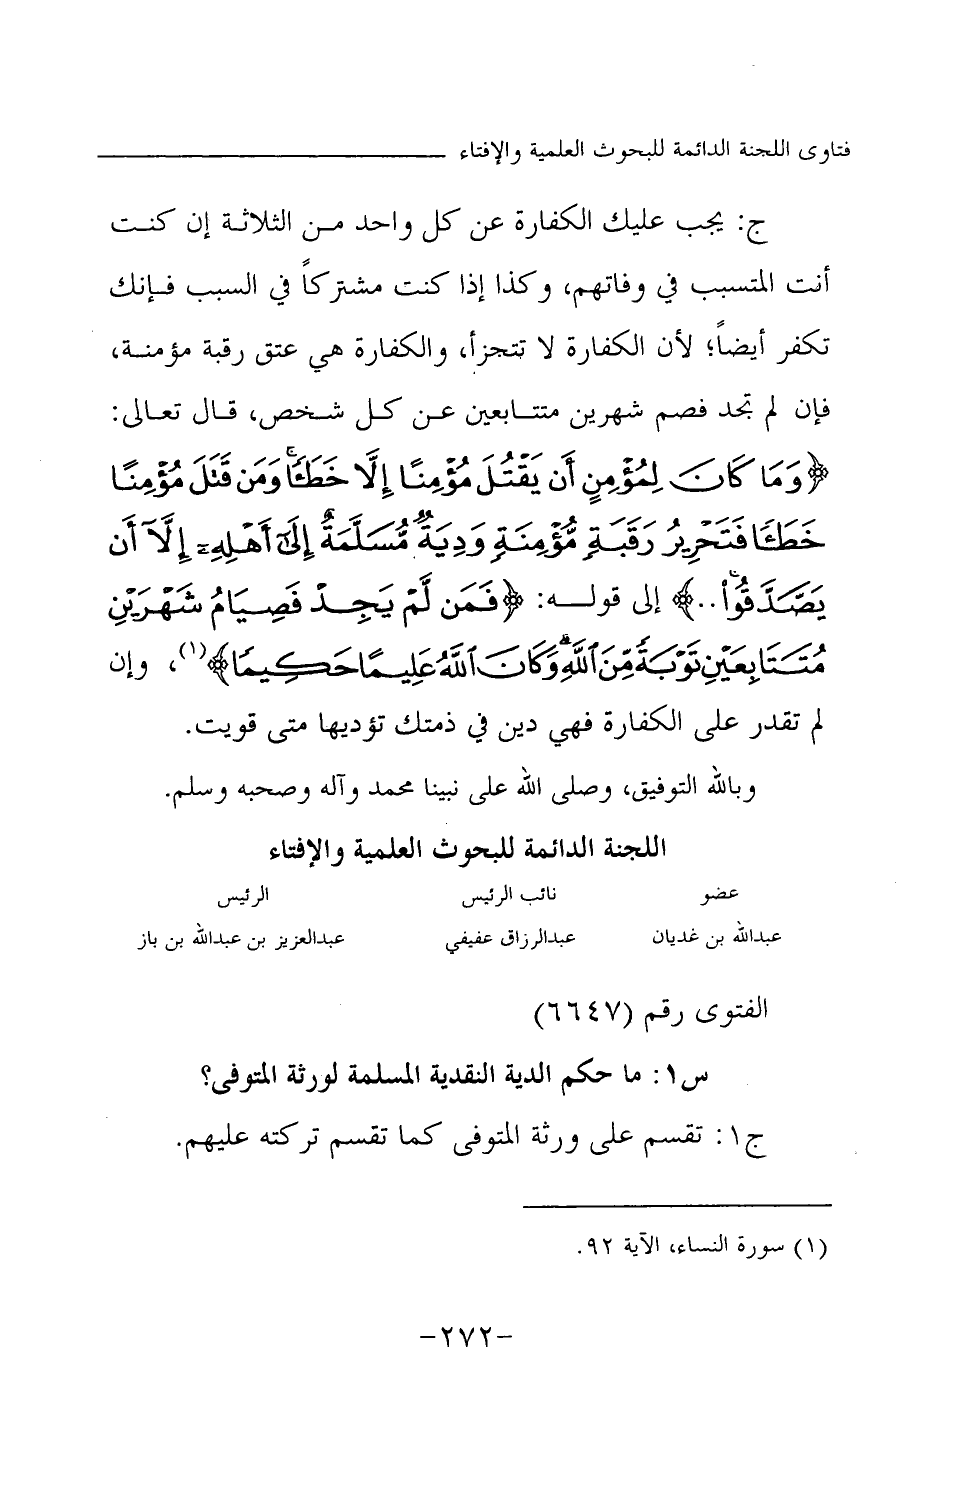 فتاوى اللجنة الدائمة للبحوث العلمية والإفتاء
ج: يجب عليك الكفارة عن كل واحد من الثلاثة إن كنت
أنت المتسبب في وفاتهم، وكذا إذا كنت مشتركاً في السبب فإنك
تكفر أيضاً؛ لأن الكفارة لا تتجزأ، والكفارة هي عتق رقبة مؤمنة،
فإن لم تجد فصم شهرين متتابعين عن كل شخص، قال تعالى:
﴿وَمَا كَانَ لِمُؤْمِنٍ أَن يَقْتُلَ مُؤْمِنًا إِلَّا خَطَـًٔا ۚ وَمَن قَتَلَ مُؤْمِنًا
خَطَـًٔا فَتَحْرِيرُ رَقَبَةٍ مُّؤْمِنَةٍ وَدِيَةٌ مُّسَلَّمَةٌ إِلَىٰٓ أَهْلِهِۦٓ إِلَّآ أَن
يَصَّدَّقُوا۟ ۚ..﴾ إلى قوله: ﴿فَمَن لَّمْ يَجِدْ فَصِيَامُ شَهْرَيْنِ
مُتَتَابِعَيْنِ تَوْبَةً مِّنَ ٱللَّهِ ۗ وَكَانَ ٱللَّهُ عَلِيمًا حَكِيمًا﴾(١)، وإن
لم تقدر على الكفارة فهي دين في ذمتك تؤديها متى قويت.
وبالله التوفيق، وصلى الله على نبينا محمد وآله وصحبه وسلم.
اللجنة الدائمة للبحوث العلمية والإفتاء
عضو نائب الرئيس الرئيس
عبدالله بن غديان عبدالرزاق عفيفي عبدالعزيز بن عبدالله بن باز
الفتوى رقم (٦٦٤٧)
س١: ما حكم الدية النقدية المسلمة لورثة المتوفى؟
ج١: تقسم على ورثة المتوفى كما تقسم تركته عليهم.
(١) سورة النساء، الآية ٩٢.
-٢٧٢-